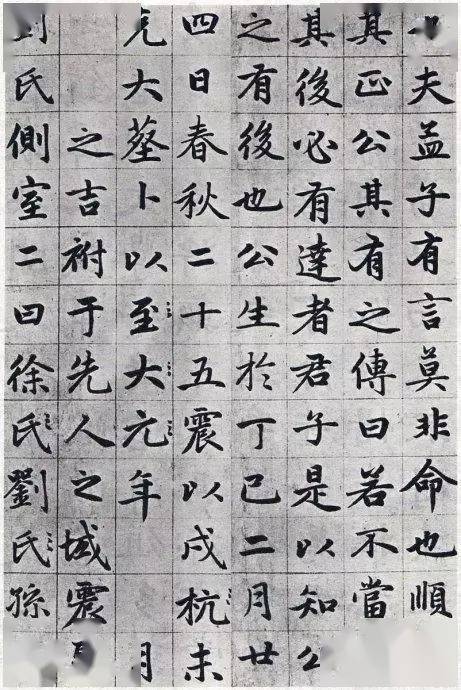 夫孟子有言莫非命也順
其正公其有之傳曰若不當
其後必有達者君子是以知公
之有後也公生於丁巳二月廿
四日春秋二十五震以戍杭未
克大塟卜以至大元年月
之吉祔于先人之城震
劉氏側室二曰徐氏劉氏孫